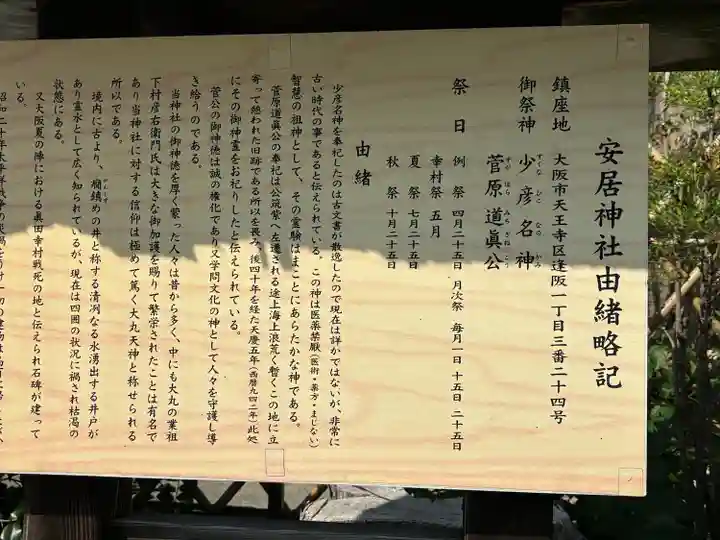 安居神社由緒略記
鎮座地 大阪市天王寺区逢阪一丁目三番二十四号
御祭神 少彦名神
すくな ひこ なの かみ
菅原道眞公
すが はら みち ざね こう
祭日 例祭 四月二十五日 月次祭 毎月一日 十五日 二十五日
幸村祭 五月
夏祭 七月二十五日
秋祭 十月二十五日
由緒
少彦名神を奉祀したのは古文書が散逸したので現在は詳かではないが、非常に
古い時代の事であると伝えられている。この神は医薬禁厭(医術・薬方・まじない)
智慧の祖神として、その霊験はまことにあらたかな神である。
菅原道眞公の奉祀は公筑紫へ左遷される途上海上浪荒く暫くこの地に立
寄って憩われた旧跡である所以を畏み、後四十年を経た天慶五年(西暦九四二年)此処
にその御神霊をお祀りしたと伝えられている。
菅公の御神徳は誠の権化であり又学問文化の神として人々を守護し導
き給うのである。
当神社の御神徳を厚く蒙った人々は昔から多く、中にも大丸の業祖
下村彦右衛門氏は大きな御加護を賜りて繁栄されたことは有名で
あり当神社に対する信仰は極めて篤く大丸天神と称せられる
所以である。
境内に古より、癇鎮めの井と称する清冽なる水湧出する井戸が
かんしずめ
あり霊水として広く知られているが、現在は四囲の状況に禍され枯渇の
状態にある。
又大阪夏の陣における眞田幸村戦死の地と伝えられ石碑が建って
いる。
昭和二十年太平洋戦争の災禍をうけ一切の建物は